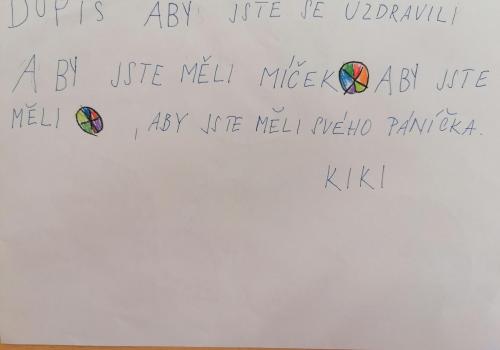 DOPIS ABY JSTE SE UZDRAVILI
ABY JSTE MĚLI MÍČEK ABY JSTE
MĚLI , ABY JSTE MĚLI SVÉHO PÁNÍČKA.
KIKI